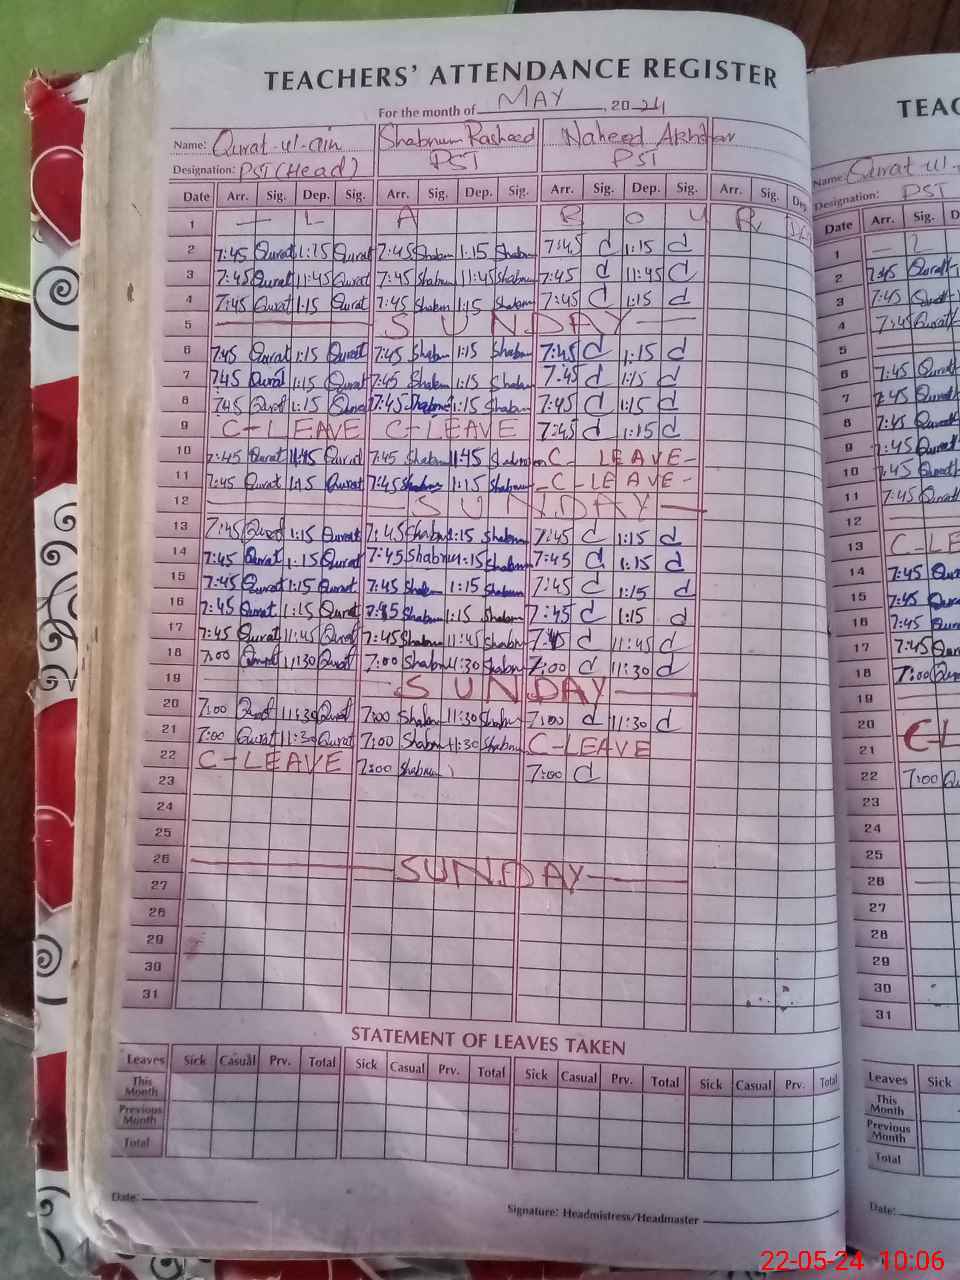 TEACHERS' ATTENDANCE REGISTER
For the month of MAY, 2024
Name: Qurat-ul-ain Shabnum Rasheed Naheed Akhtar
Designation: PST (Head) PST PST
Date Arr. Sig. Dep. Sig. Arr. Sig. Dep. Sig. Arr. Sig. Dep. Sig. Arr. Sig. Dep.
1 L A B O U R
2 7:45 Qurat 1:15 Qurat 7:45 Shabnum 1:15 Shabnum 7:45 d 1:15 d
3 7:45 Qurat 11:45 Qurat 7:45 Shabnum 11:45 Shabnum 7:45 d 11:45 d
4 7:45 Qurat 1:15 Qurat 7:45 Shabnum 1:15 Shabnum 7:45 d 1:15 d
5 SUNDAY
6 7:45 Qurat 1:15 Qurat 7:45 Shabnum 1:15 Shabnum 7:45 d 1:15 d
7 7:45 Qurat 1:15 Qurat 7:45 Shabnum 1:15 Shabnum 7:45 d 1:15 d
8 7:45 Qurat 1:15 Qurat 7:45 Shabnum 1:15 Shabnum 7:45 d 1:15 d
9 C-LEAVE C-LEAVE 7:45 d 1:15 d
10 7:45 Qurat 11:45 Qurat 7:45 Shabnum 11:45 Shabnum C-LEAVE-
11 7:45 Qurat 1:15 Qurat 7:45 Shabnum 1:15 Shabnum -C-LEAVE-
12 SUNDAY
13 7:45 Qurat 1:15 Qurat 7:45 Shabnum 1:15 Shabnum 7:45 d 1:15 d
14 7:45 Qurat 1:15 Qurat 7:45 Shabnum 1:15 Shabnum 7:45 d 1:15 d
15 7:45 Qurat 1:15 Qurat 7:45 Shabnum 1:15 Shabnum 7:45 d 1:15 d
16 7:45 Qurat 1:15 Qurat 7:45 Shabnum 1:15 Shabnum 7:45 d 1:15 d
17 7:45 Qurat 11:45 Qurat 7:45 Shabnum 11:45 Shabnum d 11:45 d
18 7:00 Qurat 11:30 Qurat 7:00 Shabnum 11:30 Shabnum 7:00 d 11:30 d
19 SUNDAY
20 7:00 Qurat 11:30 Qurat 7:00 Shabnum 11:30 Shabnum 7:00 d 11:30 d
21 7:00 Qurat 11:30 Qurat 7:00 Shabnum 11:30 Shabnum C-LEAVE
22 C-LEAVE 7:00 Shabnum 7:00 d
23
24
25
26 SUNDAY
27
28
29
30
31
STATEMENT OF LEAVES TAKEN
Leaves Sick Casual Prv. Total Sick Casual Prv. Total Sick Casual Prv. Total Sick Casual Prv. Total
This Month
Previous Month
Total
Date:
Signature: Headmistress/Headmaster
TEAC
Name: Qurat-ul-
Designation: PST
Date Arr. Sig. D
1 L
2 7:45 Qurat
3 7:45 Qurat
4 7:45 Qurat
5
6 7:45 Qurat
7 7:45 Qurat
8 7:45 Qurat
9 7:45 Qurat
10 7:45 Qurat
11 7:45 Qurat
12
13 C-LE
14 7:45 Qur
15 7:45 Qur
16 7:45 Qur
17 7:45 Qur
18 7:00 Qur
19
20
21 C-L
22 7:00 Qu
23
24
25
26
27
28
29
30
31
Leaves Sick
This Month
Previous Month
Total
Date:
22-05-24 10:06